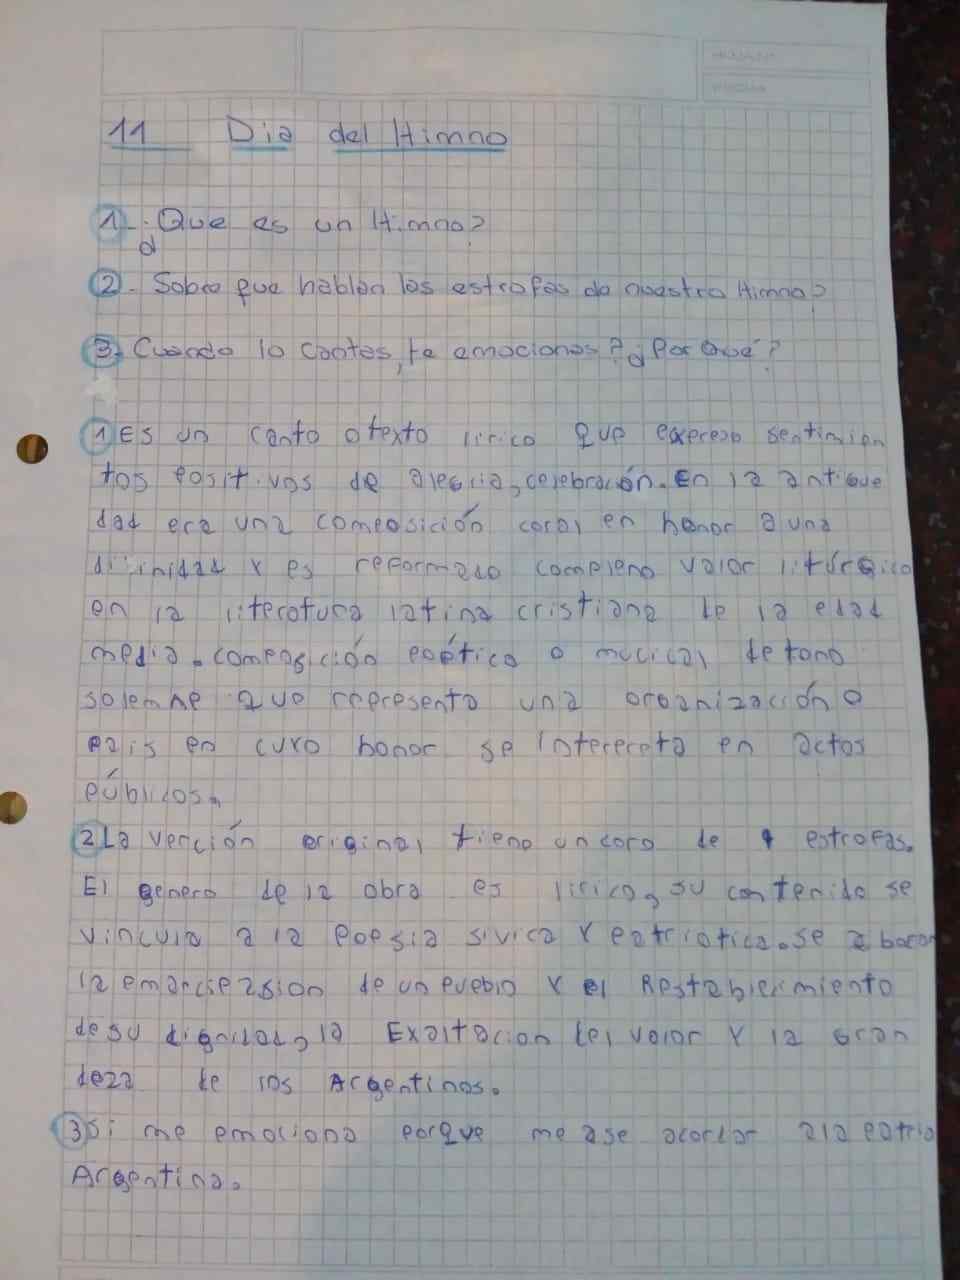 11 Dia del Himno
1-¿Que es un Himno?
2- Sobre que hablan las estrofas de nuestro Himno?
3- Cuando lo cantas, te emocionas? ¿Por Qué?
1 Es un canto o texto lirico que expresa sentimien
tos positivos de alegria, celebración. En la antigue
dad era una composición coral en honor a una
divinidad y es reformado compleno valor litúrgico
en la literatura latina cristiana de la edad
media. composición poético o mucical de tono
solemne que representa una organización o
pais en cuyo honor se interpreta en actos
públicos.
2 La verción original tiene un coro de 9 estrofas.
El genero de la obra es lirico, su contenido se
vincula a la poesia sivica y patriotica. se abocan
la emancipasion de un pueblo y el Restablecimiento
de su dignidad, la Exaltacion del valor y la gran
deza de los Argentinos.
3 Si me emociona porque me ase acordar a la patria
Argentina.